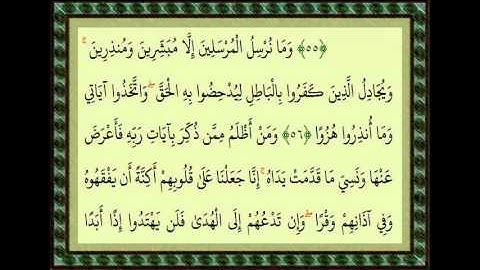 ﴿٥٥﴾ وَمَا نُرْسِلُ الْمُرْسَلِينَ إِلَّا مُبَشِّرِينَ وَمُنذِرِينَ ۚ
وَيُجَادِلُ الَّذِينَ كَفَرُوا بِالْبَاطِلِ لِيُدْحِضُوا بِهِ الْحَقَّ ۖ وَاتَّخَذُوا آيَاتِي
وَمَا أُنذِرُوا هُزُوًا ﴿٥٦﴾ وَمَنْ أَظْلَمُ مِمَّن ذُكِّرَ بِآيَاتِ رَبِّهِ فَأَعْرَضَ
عَنْهَا وَنَسِيَ مَا قَدَّمَتْ يَدَاهُ ۚ إِنَّا جَعَلْنَا عَلَىٰ قُلُوبِهِمْ أَكِنَّةً أَن يَفْقَهُوهُ
وَفِي آذَانِهِمْ وَقْرًا ۖ وَإِن تَدْعُهُمْ إِلَى الْهُدَىٰ فَلَن يَهْتَدُوا إِذًا أَبَدًا